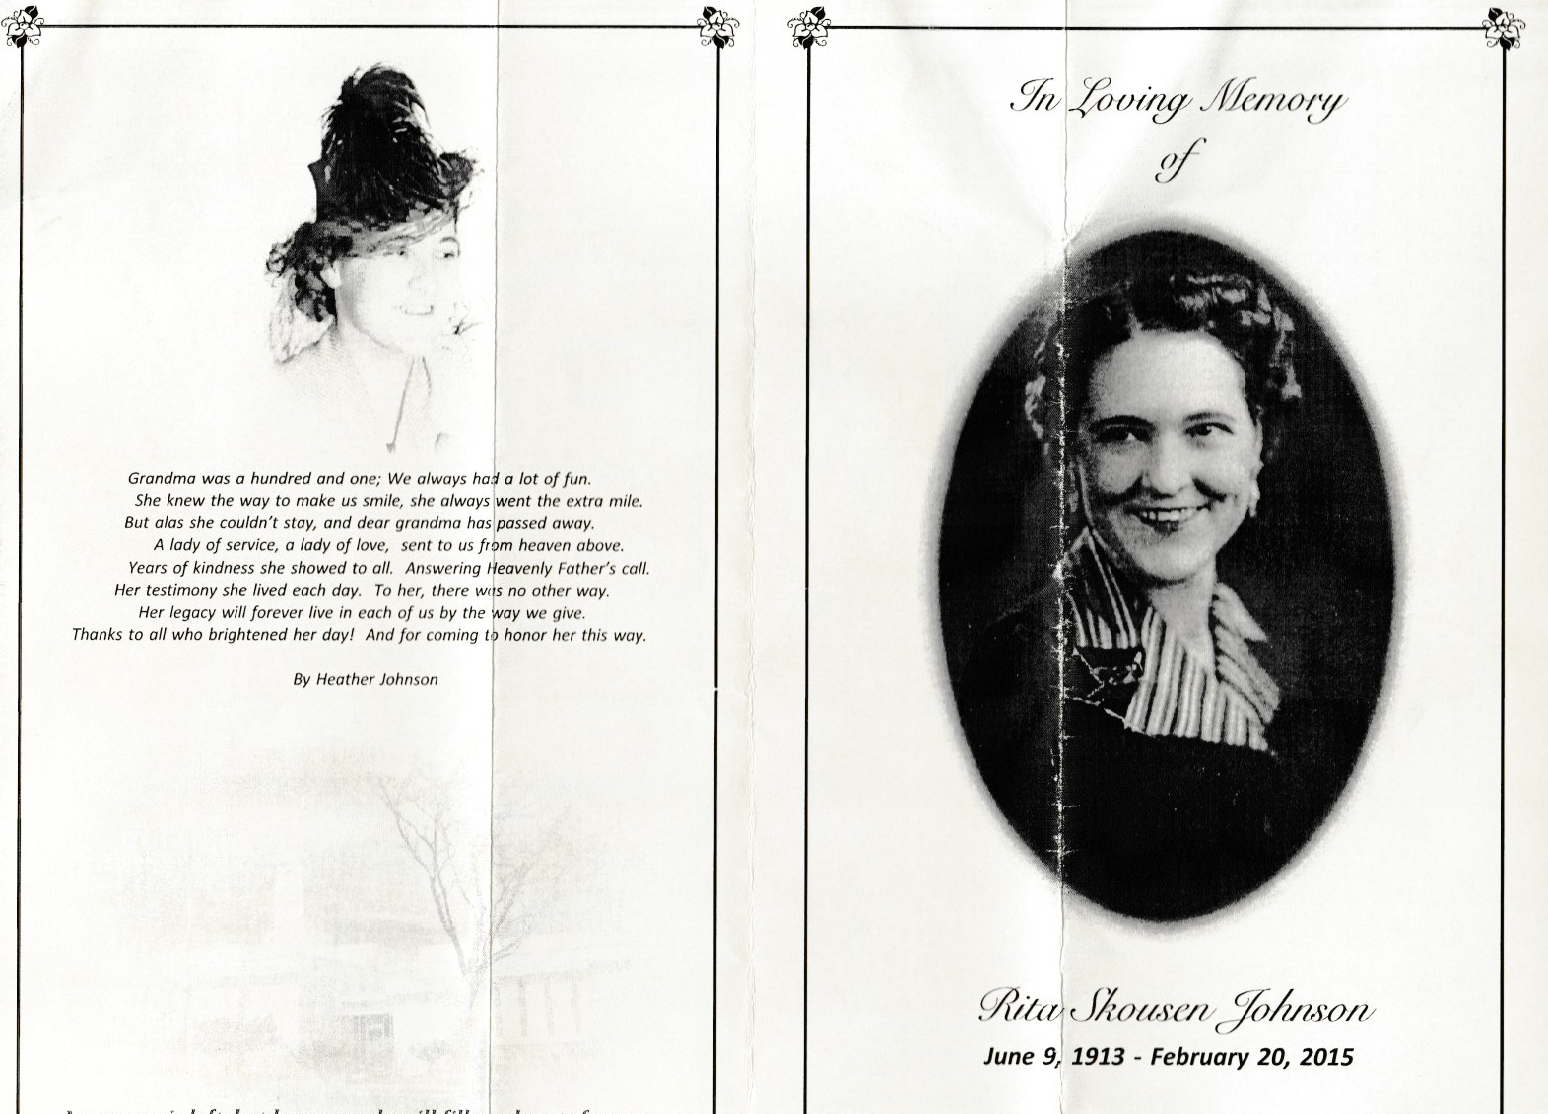 Grandma was a hundred and one; We always had a lot of fun.
She knew the way to make us smile, she always went the extra mile.
But alas she couldn't stay, and dear grandma has passed away.
A lady of service, a lady of love, sent to us from heaven above.
Years of kindness she showed to all. Answering Heavenly Father's call.
Her testimony she lived each day. To her, there was no other way.
Her legacy will forever live in each of us by the way we give.
Thanks to all who brightened her day! And for coming to honor her this way.
By Heather Johnson
In Loving Memory
of
Rita Skousen Johnson
June 9, 1913 - February 20, 2015